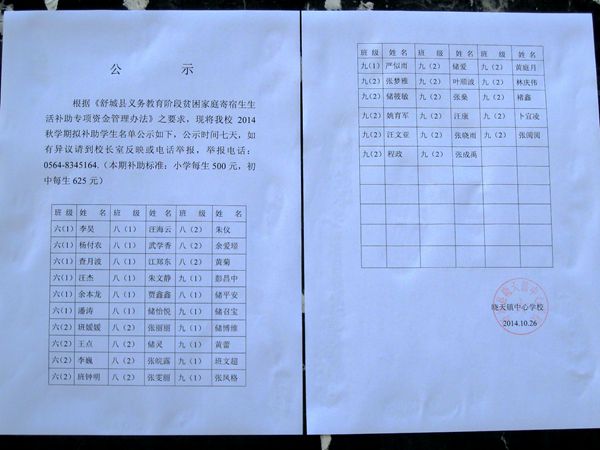 公 示
根据《舒城县义务教育阶段贫困家庭寄宿生生
活补助专项资金管理办法》之要求，现将我校 2014
秋学期拟补助学生名单公示如下，公示时间七天，如
有异议请到校长室反映或电话举报，举报电话：
0564-8345164.（本期补助标准：小学每生 500 元，初
中每生 625 元）
班 级 姓 名 班 级 姓 名 班 级 姓 名
六(1) 李昊 八（1） 汪海云 八（2） 朱仪
六(1) 杨付农 八（1） 武学香 八（2） 余爱璟
六(1) 查月波 八（1） 江郑东 八（2） 黄菊
六(1) 汪杰 八（1） 朱文静 九（1） 彭昌中
六(1) 余本龙 八（1） 贾鑫鑫 八（1） 储平安
六(1) 潘涛 八（1） 储怡悦 九（1） 储召宝
六(2) 班媛媛 八（2） 张丽丽 九（1） 储博维
六(2) 王点 八（2） 储灵 九（1） 黄蕾
六(2) 李巍 八（2） 张皖露 九（1） 班文超
六(2) 班钟明 八（2） 张雯丽 九（1） 张凤格
班 级 姓 名 班 级 姓 名 班 级 姓 名
九(1) 严似雨 九（2） 储爱 九（2） 黄庭月
九(2) 张梦雅 九（2） 叶顺波 九（2） 林庆伟
九(2) 储筱敏 九（2） 张燊 九（2） 褚鑫
九(2) 姚育军 九（2） 汪康 九（2） 卜宜凌
九(2) 汪文亚 九（2） 张晓雨 九（2） 张阔阔
九(2) 程政 九（2） 张成禹
晓天镇中心学校
2014.10.26